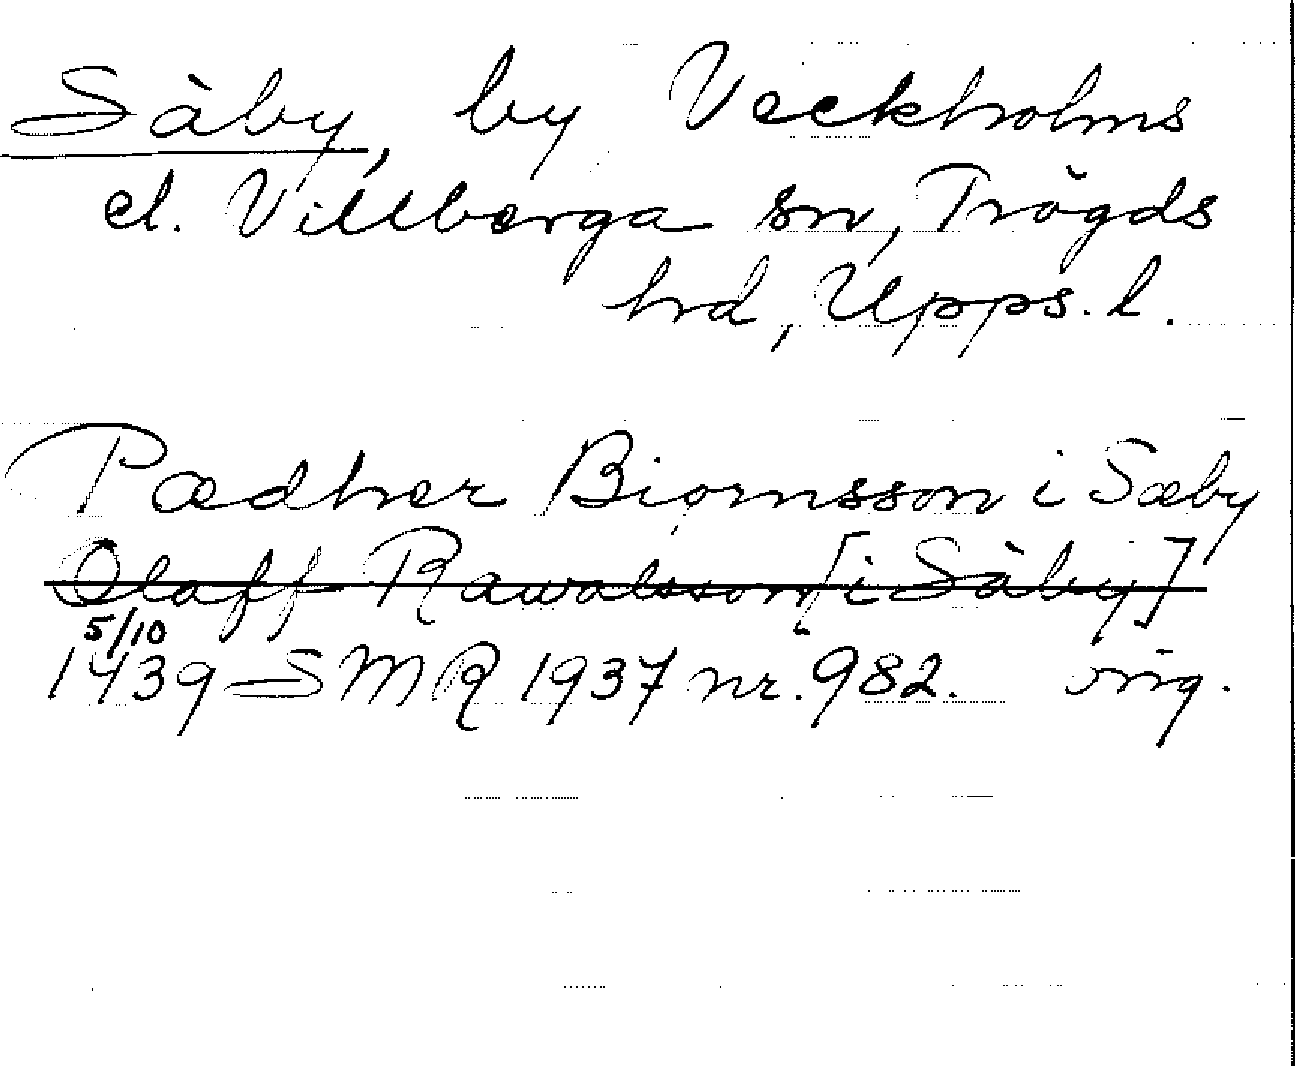 Såby, by Veckholms
el. Villberga sn, Trögds
hd, Upps. l.
Pædher Biornsson i Sæby
Olaff Rawalsson [i Såby]
5/10
1439 SMR 1937 nr. 982. orig.